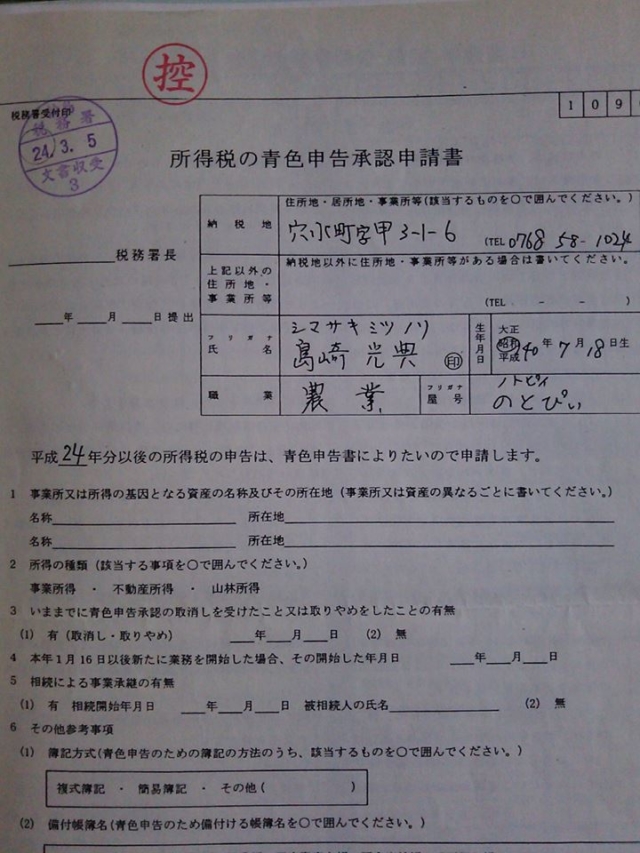 控
税務署受付印
税務署
24.3.5
文書収受
3
1 0 9
所得税の青色申告承認申請書
税務署長
年 月 日提出
納税地
住所地・居所地・事業所等(該当するものを○で囲んでください。)
穴水町字甲3-1-6
(TEL 0768 58-1024
上記以外の住所地・事業所等
納税地以外に住所地・事業所等がある場合は書いてください。
(TEL - - )
フリガナ
シマサキミツノリ
氏名
島崎光典 印
生年月日
大正
昭和
平成
40年7月18日生
職業
農業
フリガナ
ノトピィ
屋号
のとぴぃ
平成24年分以後の所得税の申告は、青色申告書によりたいので申請します。
1 事業所又は所得の基因となる資産の名称及びその所在地(事業所又は資産の異なるごとに書いてください。)
名称 所在地
名称 所在地
2 所得の種類(該当する事項を○で囲んでください。)
事業所得 ・ 不動産所得 ・ 山林所得
3 いままでに青色申告承認の取消しを受けたこと又は取りやめをしたことの有無
(1) 有(取消し・取りやめ) 年 月 日 (2) 無
4 本年1月16日以後新たに業務を開始した場合、その開始した年月日 年 月 日
5 相続による事業承継の有無
(1) 有 相続開始年月日 年 月 日 被相続人の氏名 (2) 無
6 その他参考事項
(1) 簿記方式(青色申告のための簿記の方法のうち、該当するものを○で囲んでください。)
複式簿記 ・ 簡易簿記 ・ その他( )
(2) 備付帳簿名(青色申告のため備付ける帳簿名を○で囲んでください。)